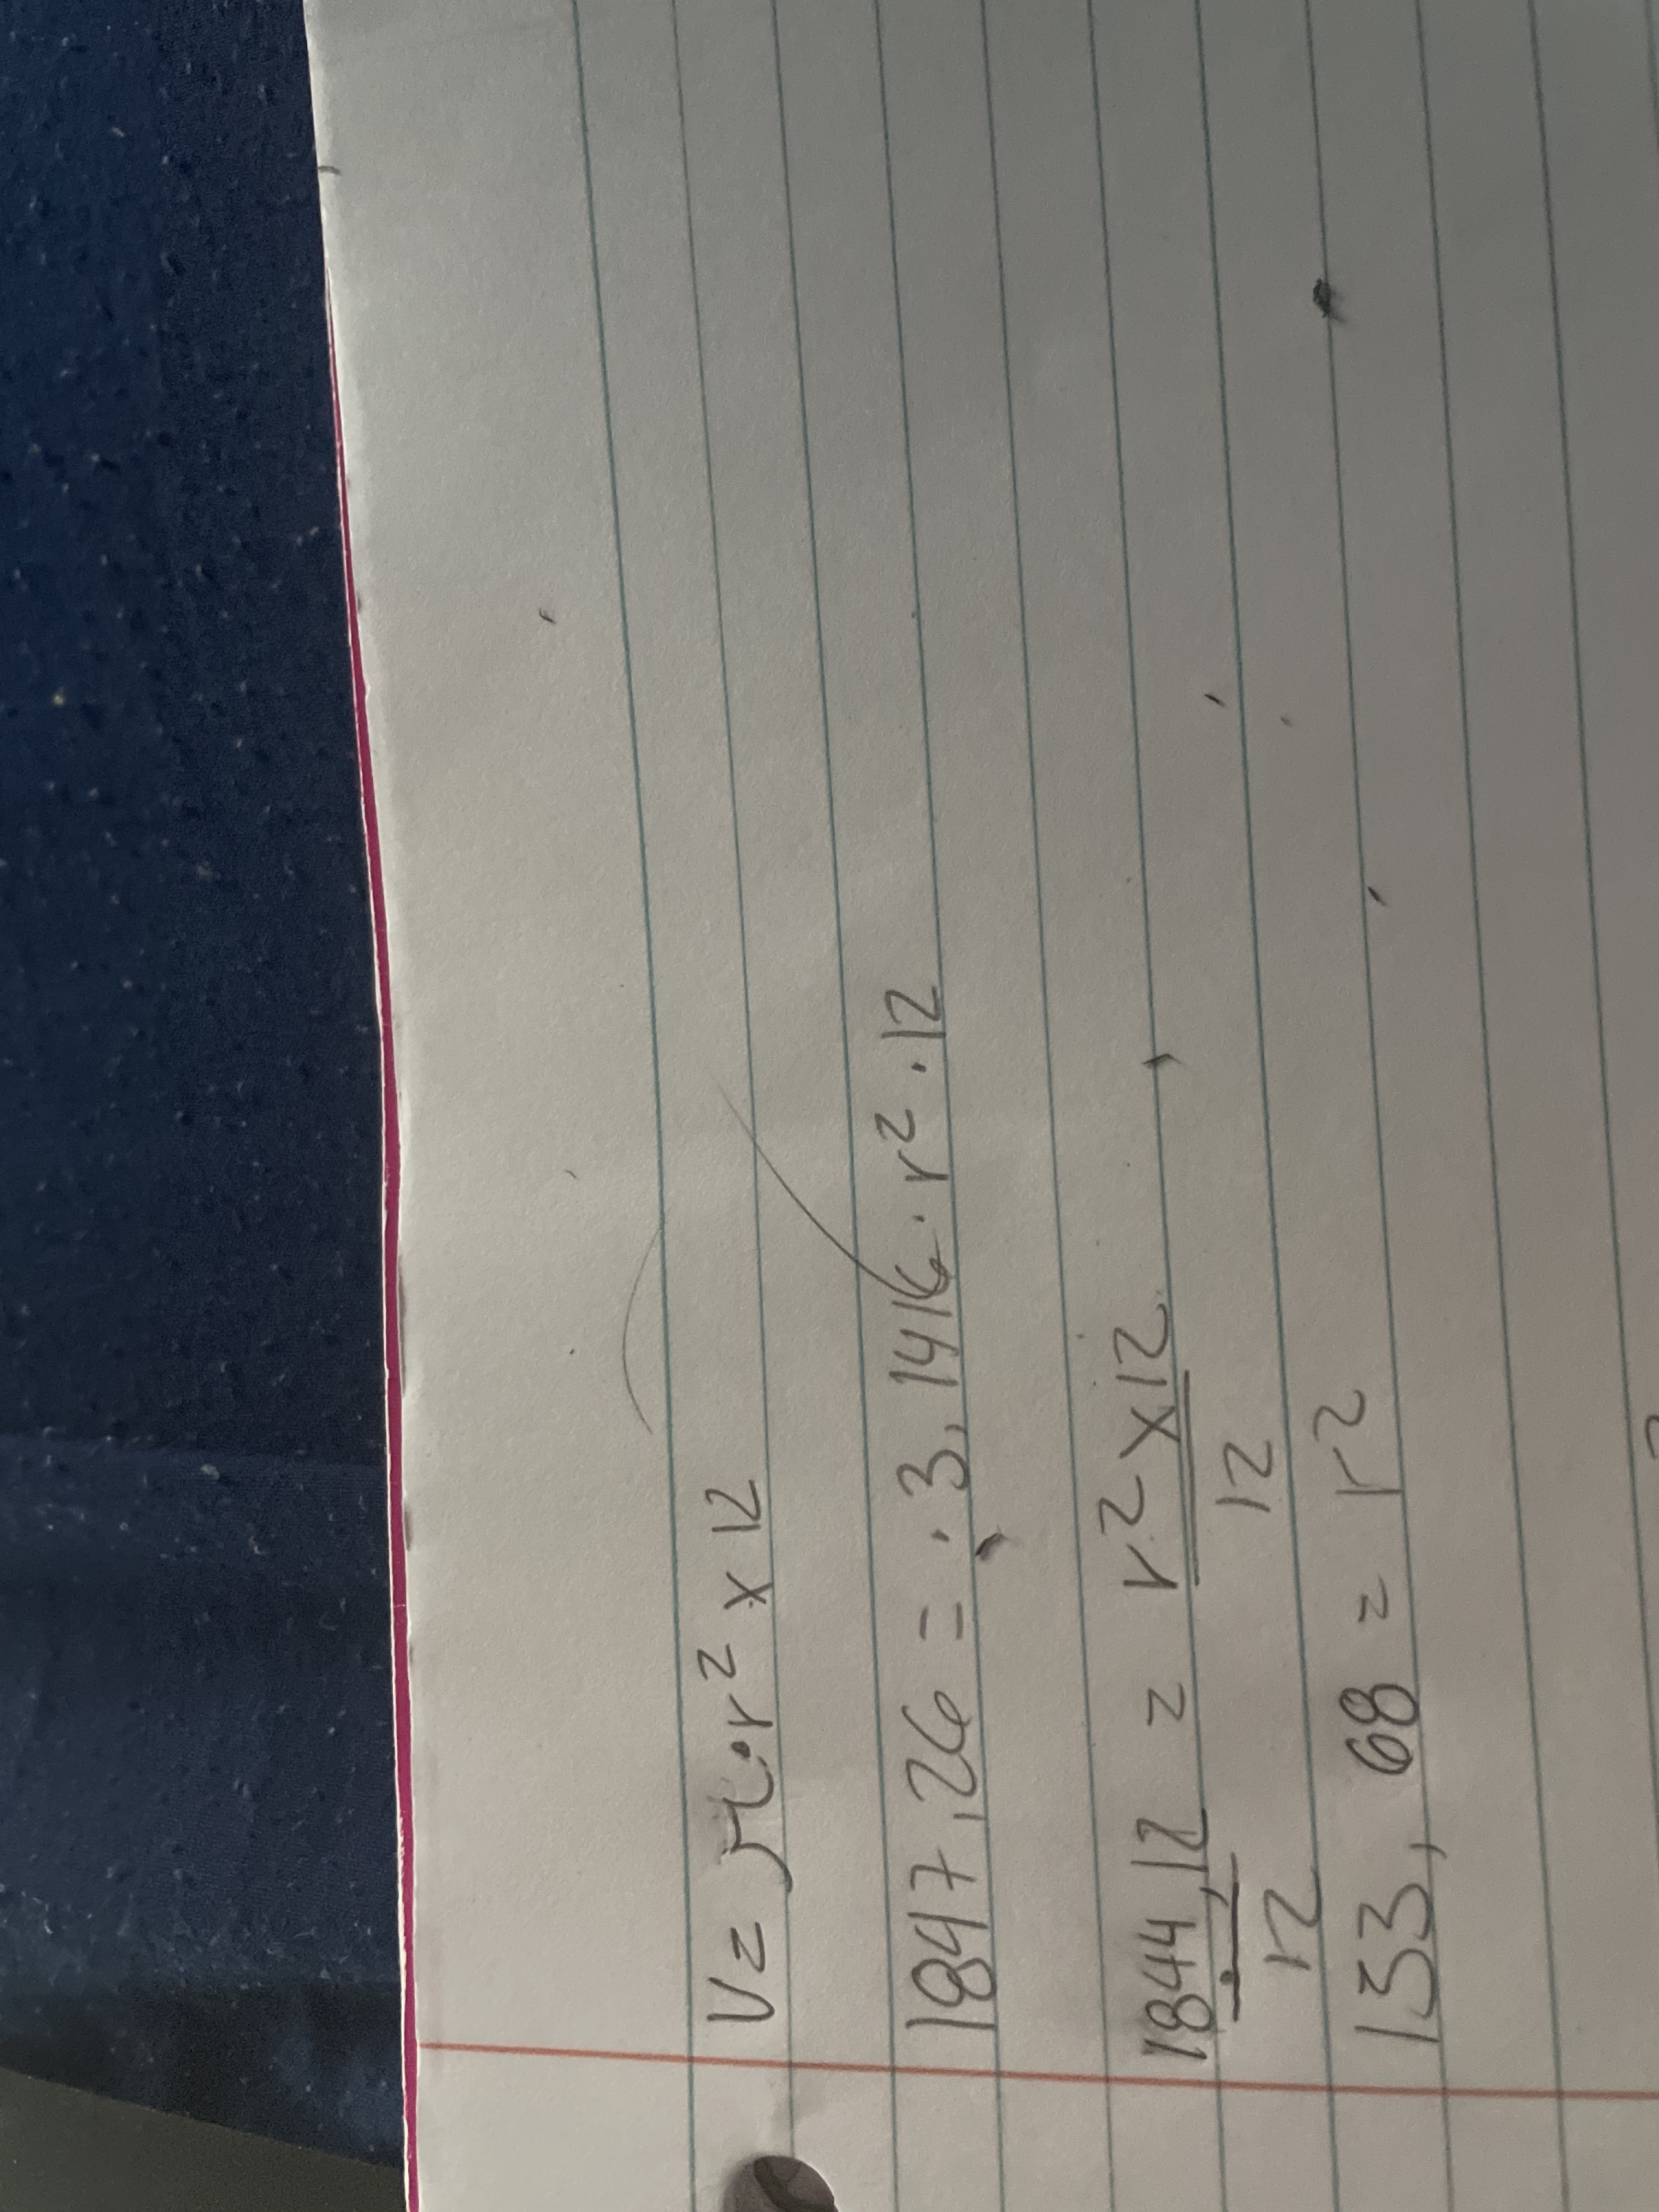 V = π·r² x 12
1847.26 = · 3.1416 · r² · 12
1844.12 = r² x 12
12 12
133, 68 = r²